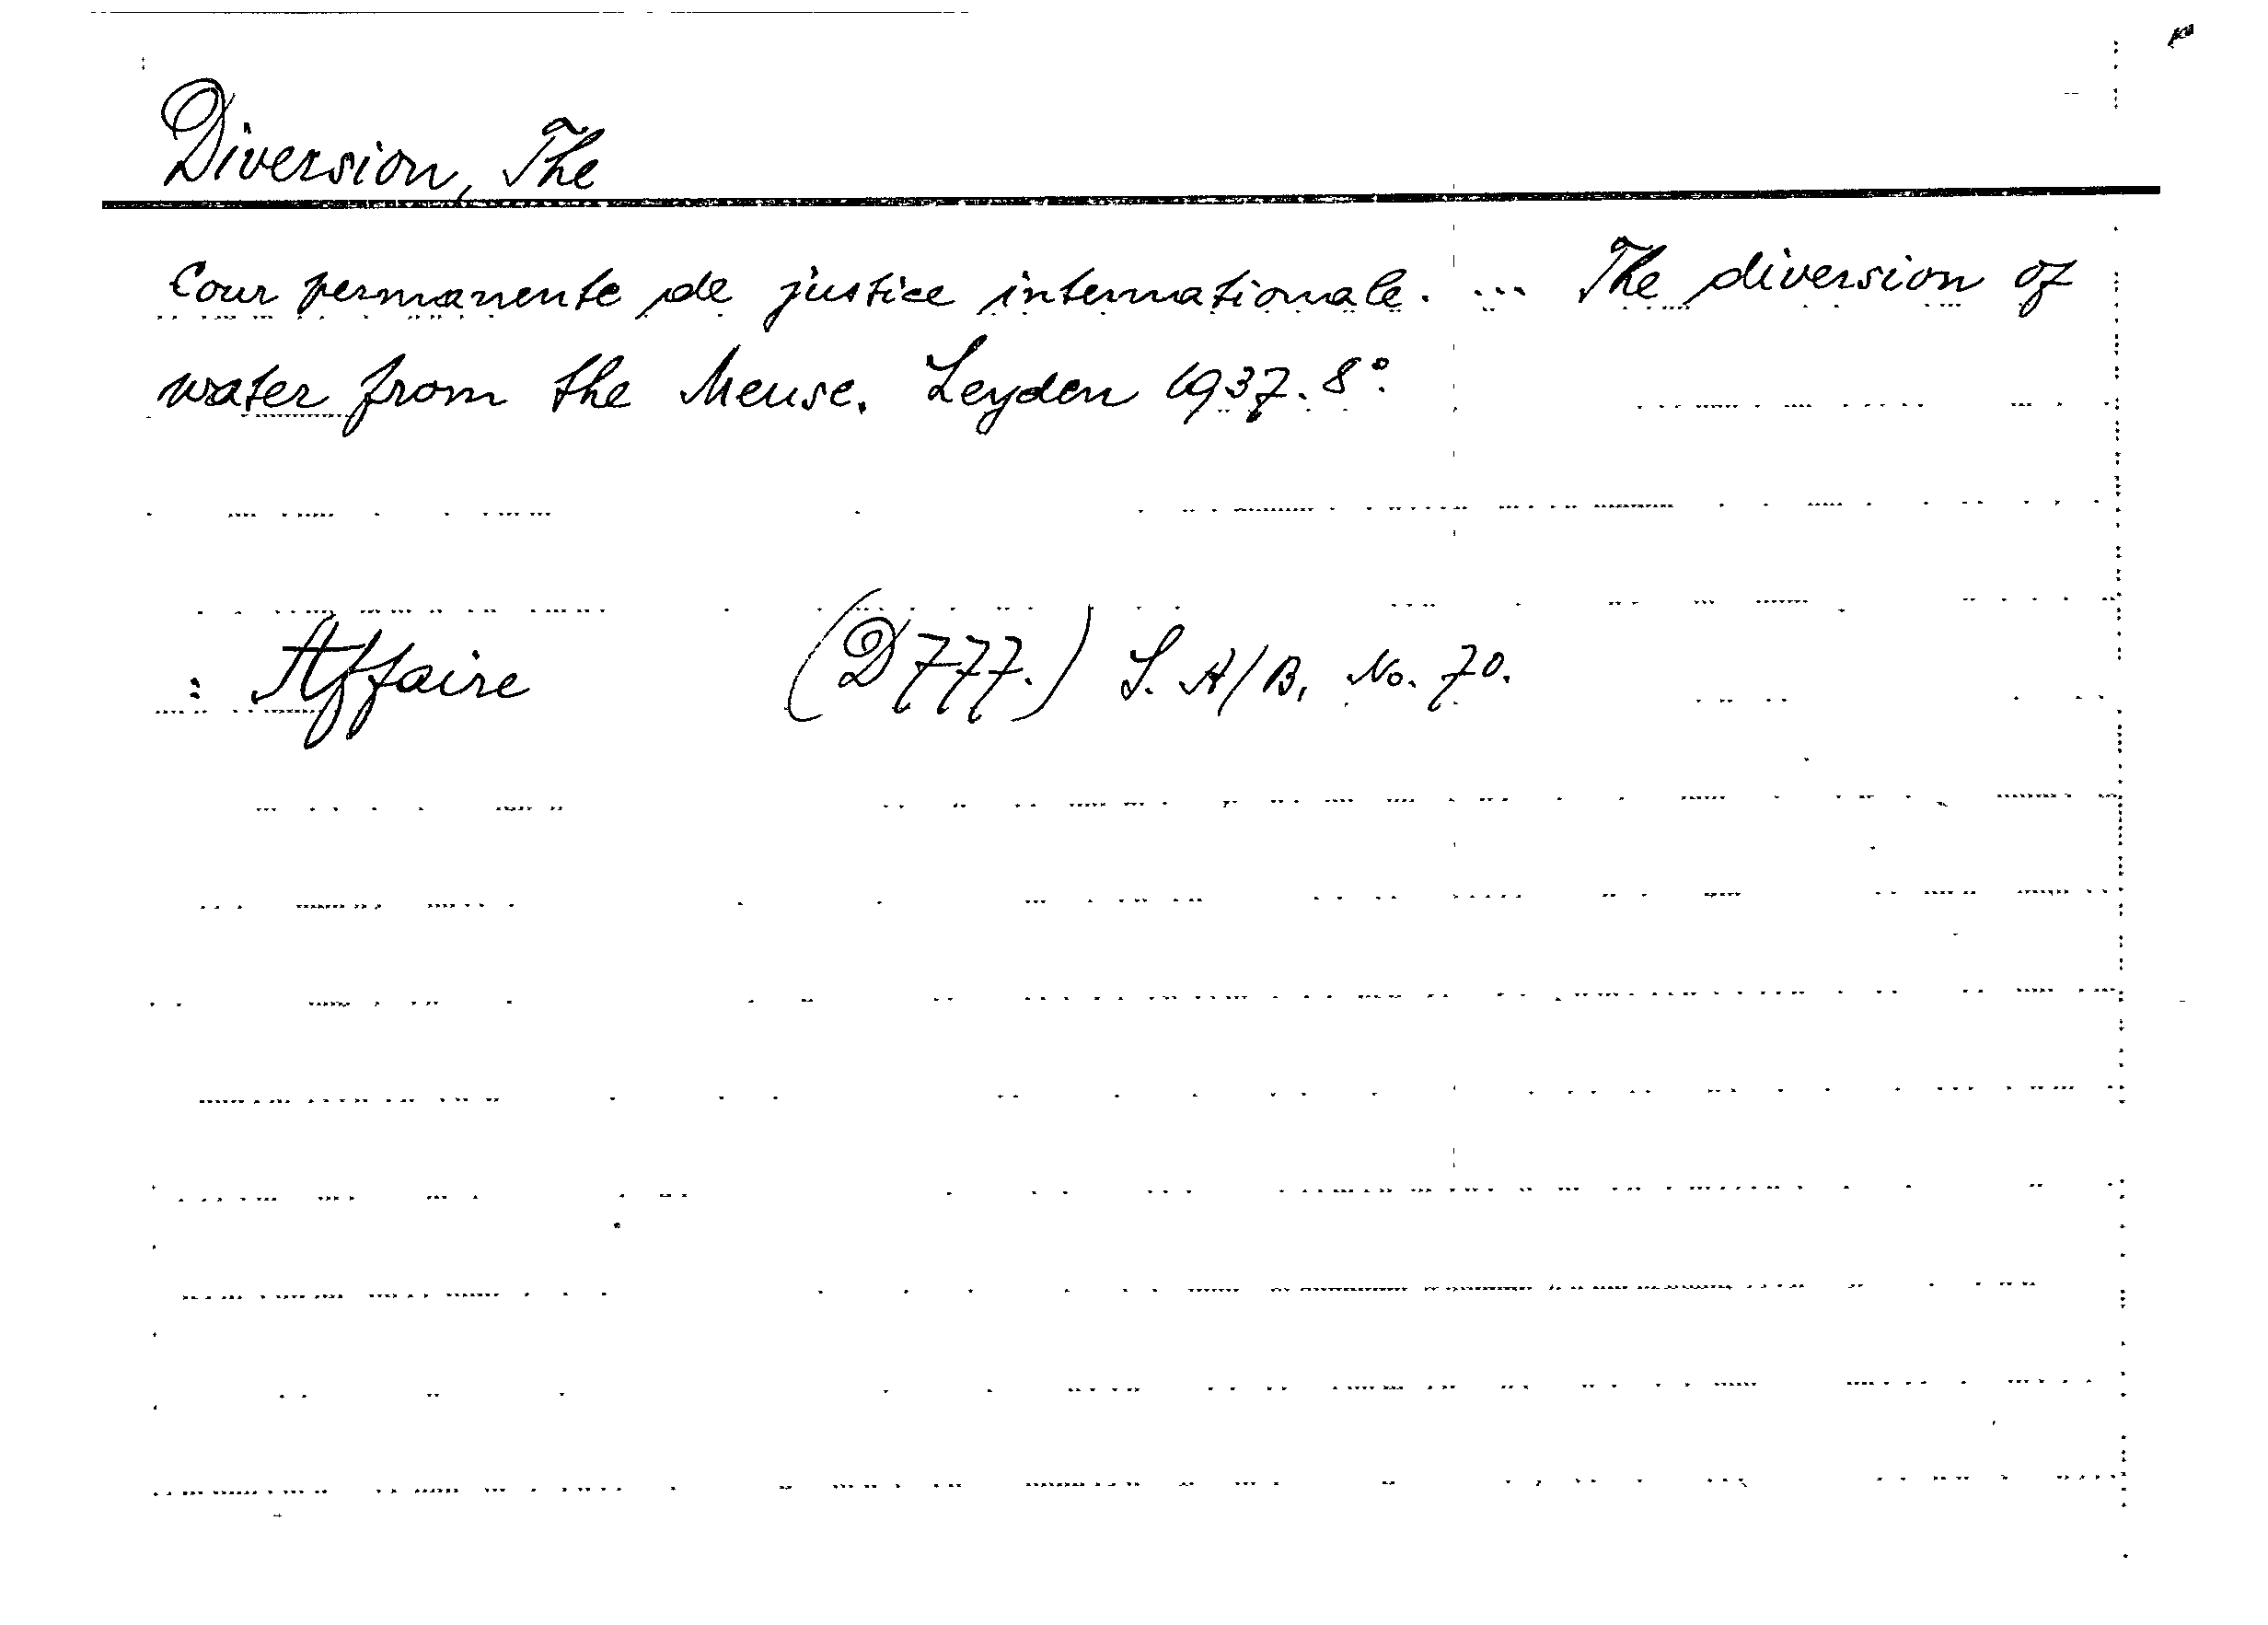 Diversion, The
Cour permanente de justice internationale. ... The diversion of
water from the Meuse. Leyden 1937. 8°.
: Affaire (D 777.) S. A/B, No. 70.